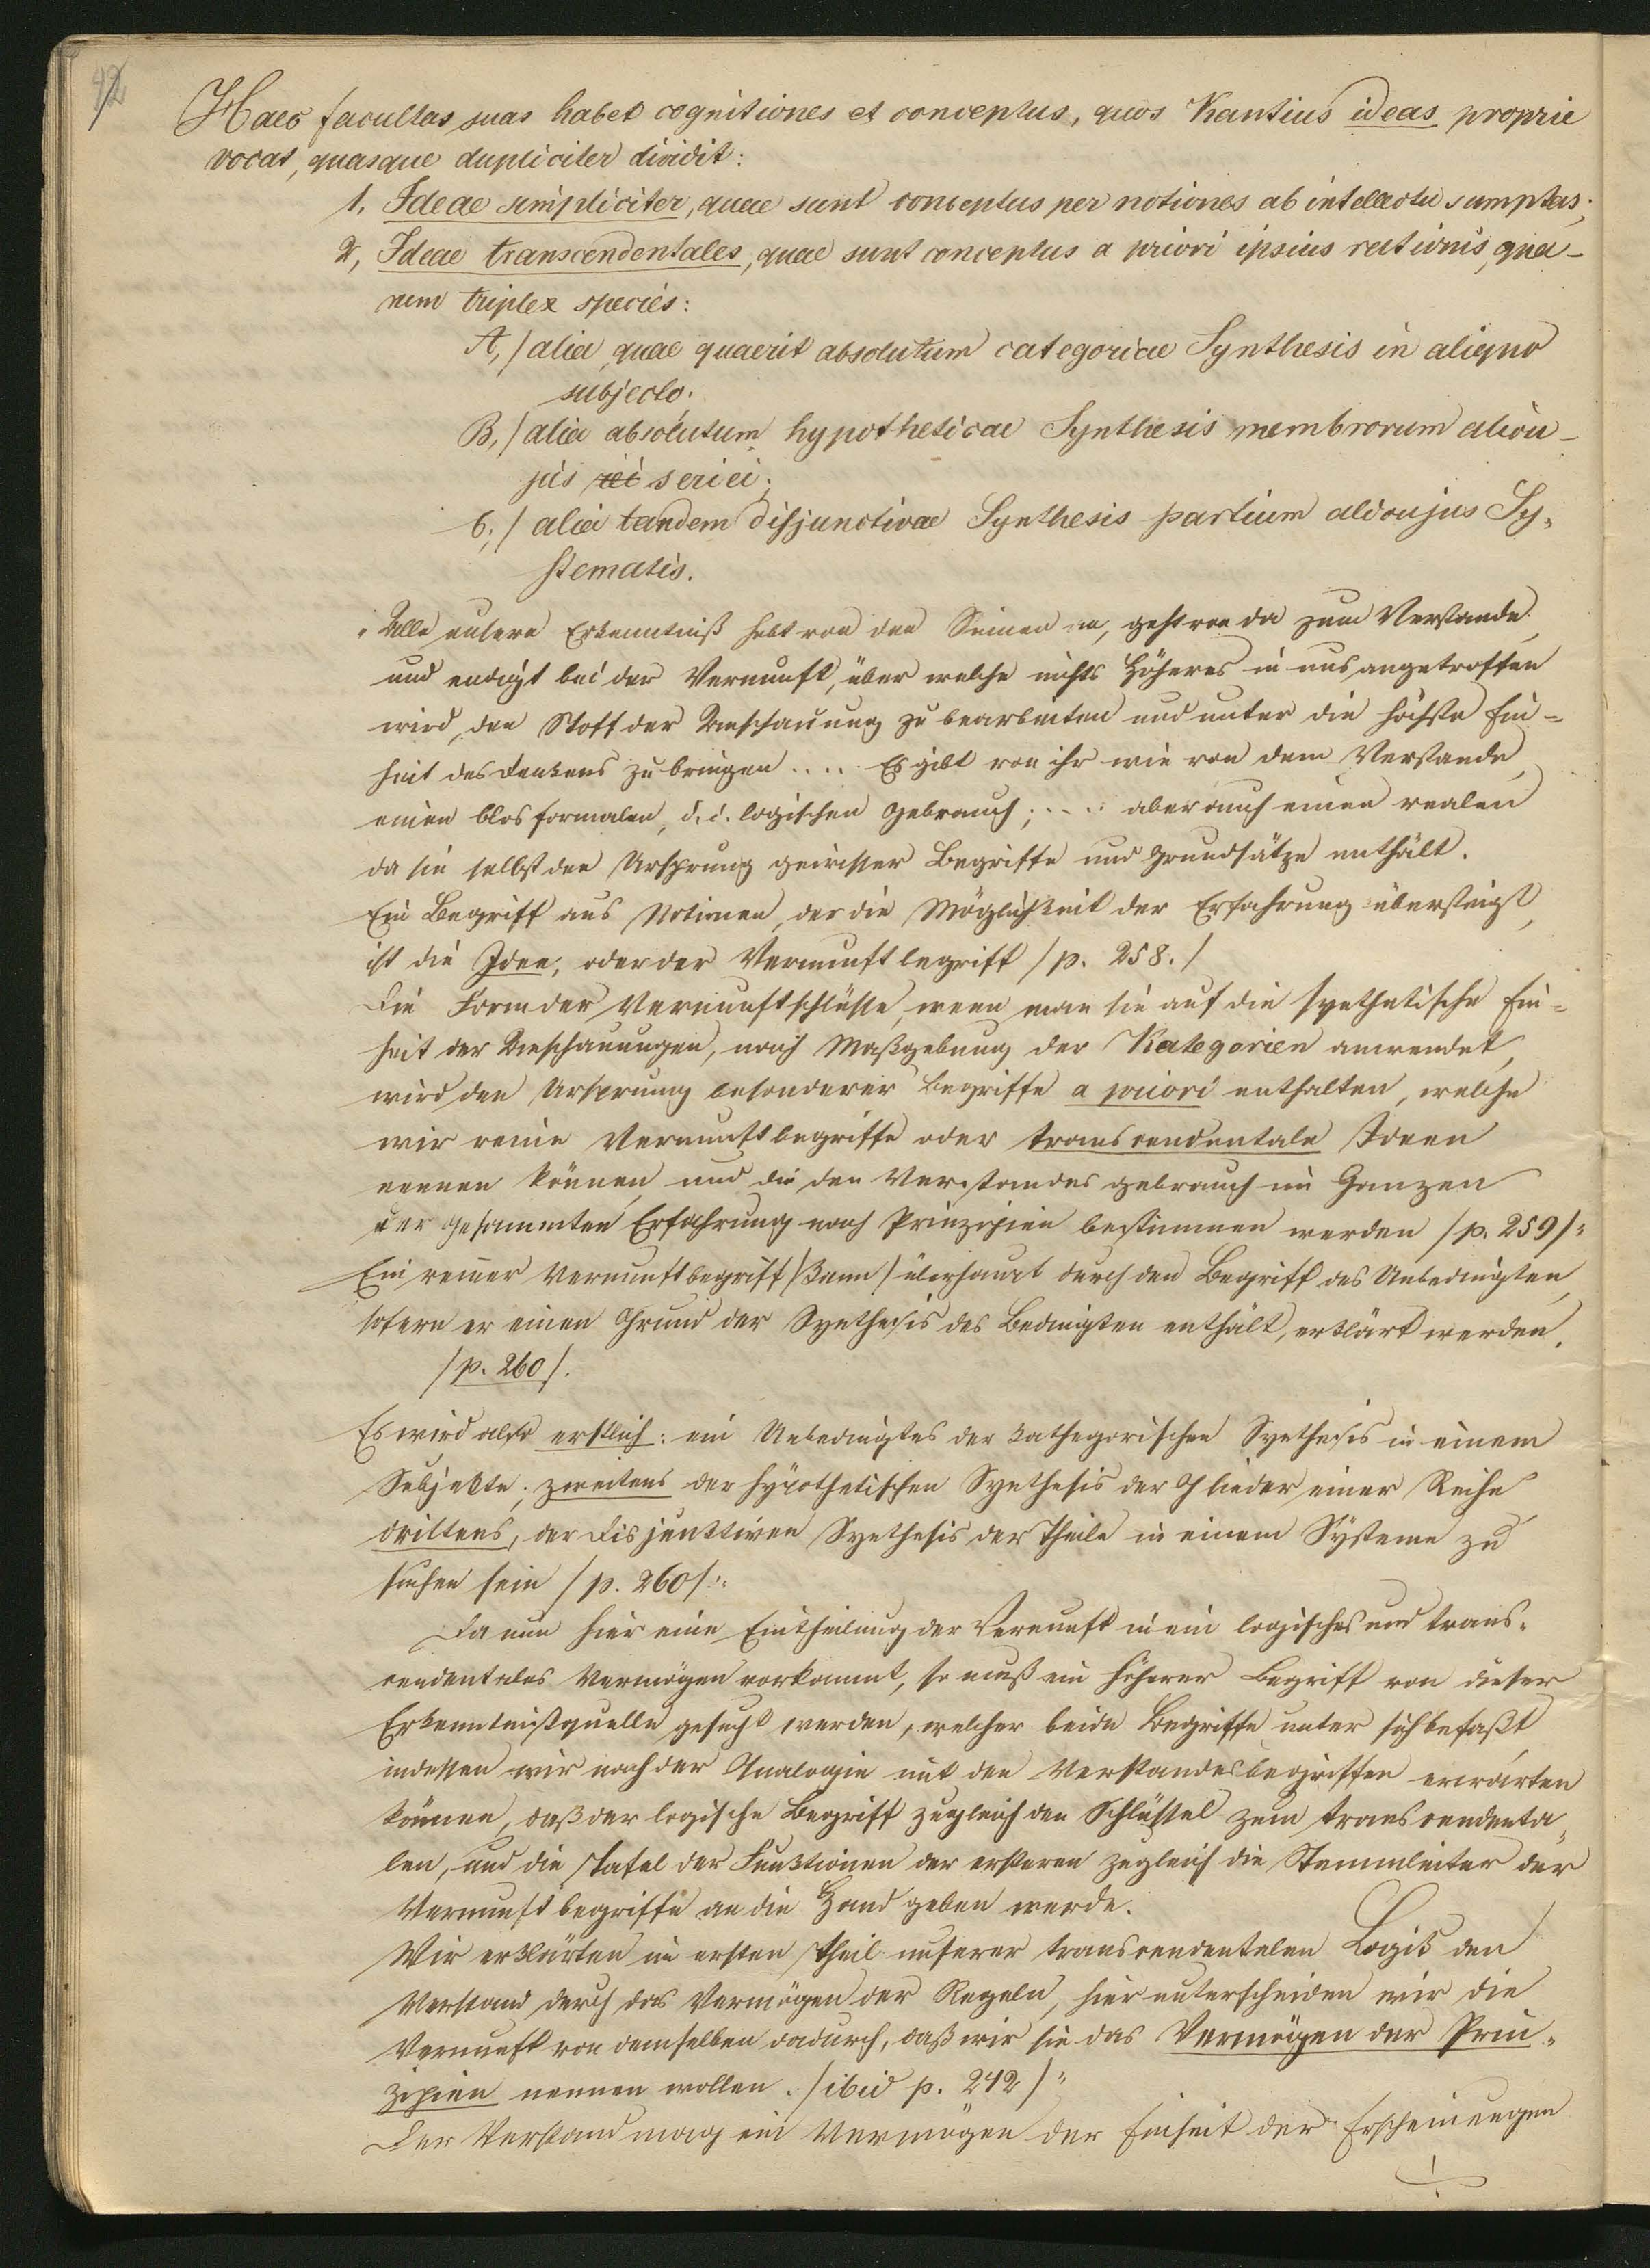 42
Haec facultas suas habet cognitiones et conceptus, quos Kantius ideas proprie
vocat, quasque dupliciter dividit:
1, Ideae simpliciter, quae sunt conceptus per notiones ab intellectu sumptas;
2, Ideae transcendentales, quae sunt conceptus a priori ipsius rationis, qua-
rum triplex species:
A,/ alia, quae quaerit absolutum categoricae Synthesis in aliquo
subjecto.
B,/ alia absolutum hypotheticae Synthesis membrorum alicu-
jus rei seriei;
C,/ alia tandem disjunctivae Synthesis partium alicujus Sy-
stematis.
"Alle unsere Erkenntniß hebt von den Sinnen an, geht von da zum Verstande
und endigt bei der Vernunft, über welche nichts Höheres in uns angetroffen
wird, den Stoff der Anschauung zu bearbeiten und unter die höchste Ein-
heit des Denkens zu bringen .... Es gibt von ihr wie von dem Verstande,
einen blos formalen, d. i. logischen Gebrauch; .... aber auch einen realen
da sie selbst den Ursprung gewisser Begriffe und Grundsätze enthält.
Ein Begriff aus Notionen, der die Möglichkeit der Erfahrung übersteigt,
ist die Idee, oder der Vernunftbegriff /p. 258./
Die Form der Vernunftschlüsse, wenn man sie auf die synthetische Ein-
heit der Anschauungen, nach Maßgebung der Kategorien anwendet,
wird den Ursprung besonderer Begriffe a priori enthalten, welche
wir reine Vernunftbegriffe oder transcendentale Ideen
nennen können, und die den Verstandesgebrauch im Ganzen
der gesammten Erfahrung nach Prinzipien bestimmen werden /p. 259/"
Ein reiner Vernunftbegriff /kann/ überhaupt durch den Begriff des Unbedingten,
sofern er einen Grund der Synthesis des Bedingten enthält, erklärt werden.
/p. 260/.
Es wird also erstlich: ein Unbedingtes der kathegorischen Synthesis in einem
Subjekte; zweitens der hypothetischen Synthesis der Glieder einer Reihe
drittens, der disjunktiven Synthesis der Theile in einem Systeme zu
suchen sein /p. 260/."
Da nun hier eine Eintheilung der Vernunft in ein logisches und trans-
cendentales Vermögen vorkommt, so muß ein höherer Begriff von dieser
Erkenntnißquelle gesucht werden, welcher beide Begriffe unter sich befaßt,
indessen wir nach der Analogie mit den Verstandesbegriffen erwarten
können, daß der logische Begriff zugleich den Schlüssel zum transcendenta-
len, und die Tafel der Funktionen der ersteren zugleich die Stammleiter der
Vernunftbegriffe an die Hand geben werde.
Wir erklärten im ersten Theil unserer transcendentalen Logik den
Verstand durch das Vermögen der Regeln, hier unterscheiden wir die
Vernunft von demselben dadurch, daß wir sie das Vermögen der Prin-
zipien nennen wollen. /ibid p. 242/"
Der Verstand mag ein Vermögen der Einheit der Erscheinungen